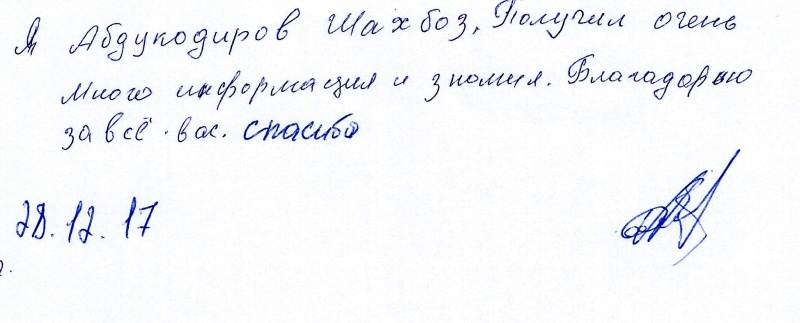 Я Абдукодиров Шахбоз, Получил очень
много информация и зномия. Благадорю
за всё вас. спасибо
28.12.17
г.